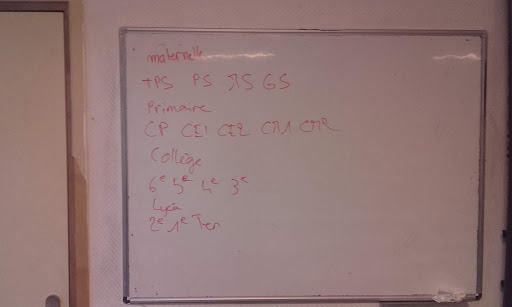 maternelle
TPS PS MS GS
Primaire
CP CE1 CE2 CM1 CM2
Collège
6e 5e 4e 3e
Lycée
2e 1e Ter